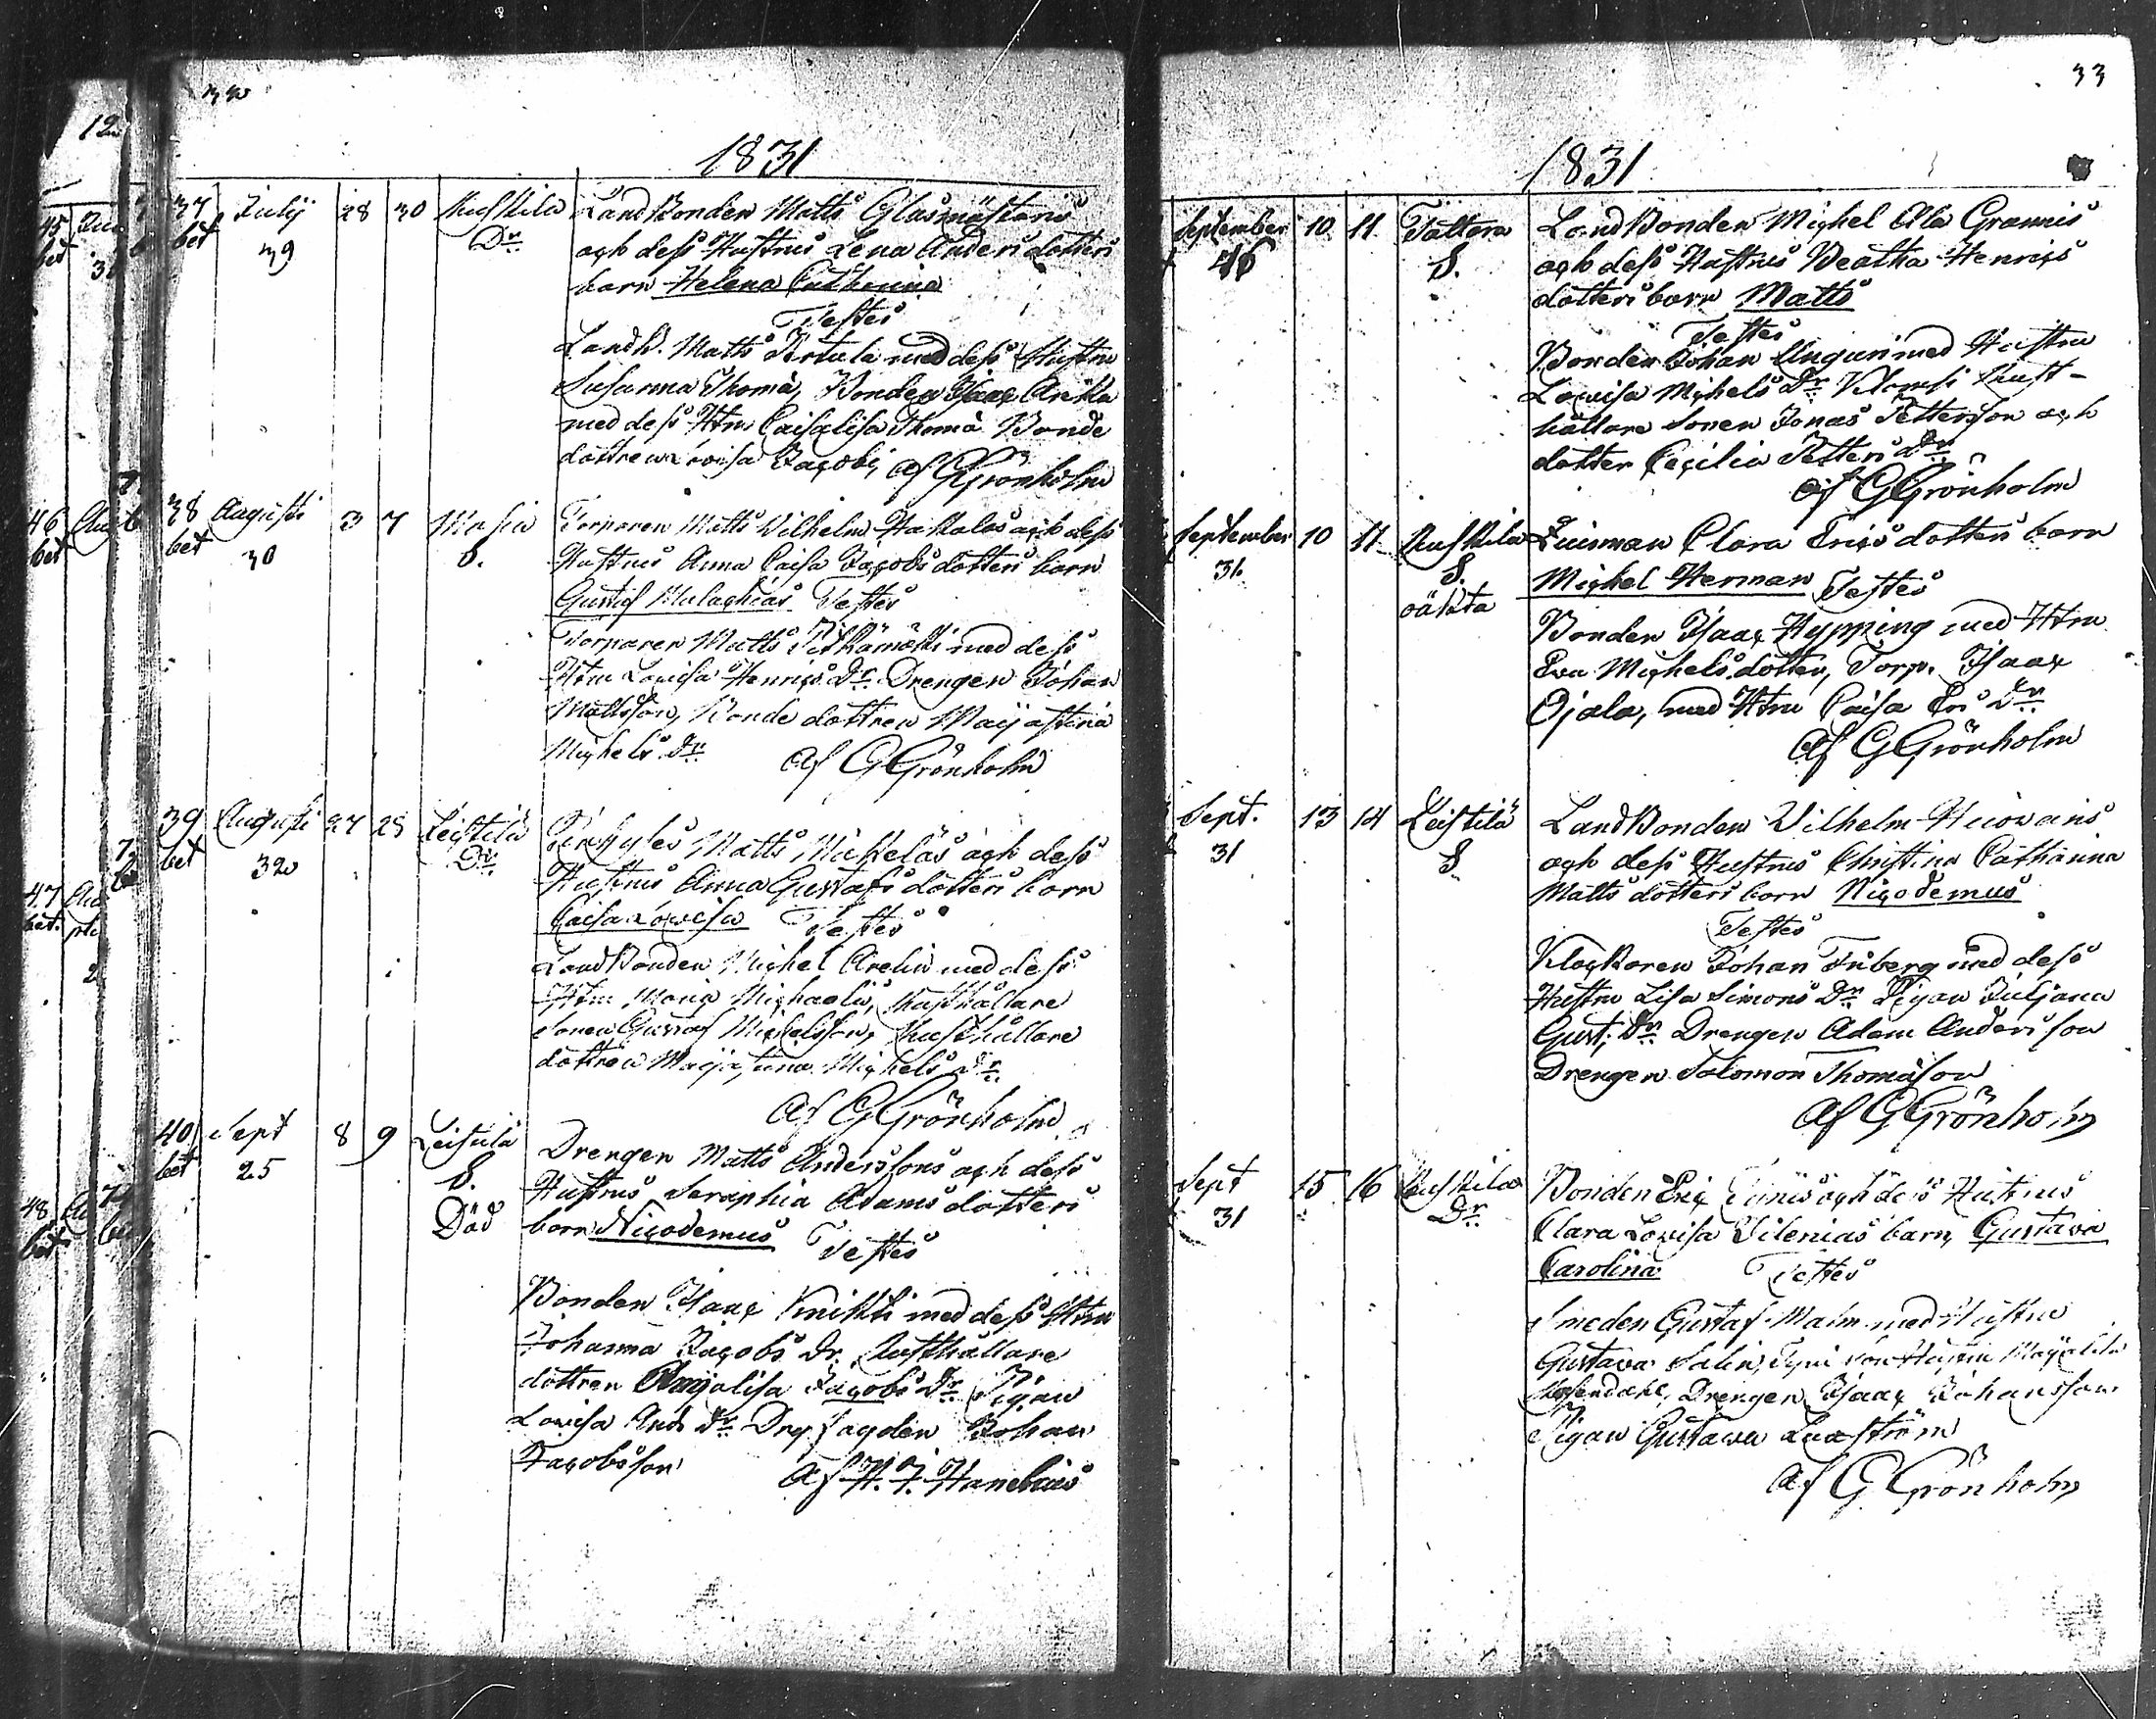 32
1831
37 July 28 30 Ruskila LandBonden Matts Glasmästares
bet 39 Dr. och dess Hustrus Lena Anders dotters
barn Helena Catharina
Testes
Landb. Matts med dess Hustru
Susanna Thomä, Bonden Isaac Anka
med dess Htru Caisalisa Thomä Bonde
dottren Lovisa Jacobi, af G Grönholm
38 Augusti 3 7 Masia Torparen Matts Wilhelm Hakalas och dess
bet 30 S. Hustrus Anna Caisa Jacobs dotters barn
Gustaf Malachias Testes
Torparen Matts Pitkämäki med dess
Htru Lovisa Henrics Dr. Drengen Johan
Mattsson, Bonde dottren Maijastina
Michels Dr. Af G Grönholm
39 Augusti 27 28 Leistilä Matts Mickeläs och dess
bet 32 Dr. Hustrus Anna Gustafs dotters barn
Caisa Lovisa Testes
LandBonden Michel Arelin med dess
Htru Maria Michaelis, Rusthållare
sonen Gustaf Michelsson, Rusthållare
dottren Maijastina Michels Dr.
Af G Grönholm
40 Sept 8 9 Leistilä Drengen Matts Anderssons och dess
bet 25 S. Hustrus Seraphia Adams dotters
Död barn Nicodemus Testes
Bonden Isaac Knihti med dess Htru
Johanna Jacobs Dr. Rusthållare
dottren Annalisa Jacobs Dr. Pigan
Lovisa And. Dr. Johan
Jacobsson Af H. J. Hanelius
45
bet
46
bet
47
bet.
48
bet
33
1831
September 10 11 Tattara LandBonden Michel Ala Grannis
46 S. och dess Hustrus Beatha Henrics
dotters barn Matts
Testes
Bonden Johan Unguri med Hustru
Lovisa Michels Dr. Rust-
hållare sonen Jonas Pettersson och
dotter Cecilia Petters Dr.
af G Grönholm
September 10 11 Ruskila Qvinman Clara Erics dotters barn
31 S. Michel Herman Testes
oäkta
Bonden Isaac Hypping med Htru
Eva Michels dotter, Torp. Isaac
Ojala, med Htru Caisa Er. Dr.
Af G Grönholm
Sept. 13 14 Leistilä LandBonden Wilhelm
31 S. och dess Hustrus Christina Catharina
Matts dotters barn Nicodemus
Testes
Klockaren Johan Friberg med dess
Hustru Lisa Simons Dr. Pigan Juliana
Gust. Dr. Drengen Adam Andersson
Drengen Salomon Thomasson
Af G Grönholm
Sept 15 16 Ruskila Bonden Eric och dess Hustrus
31 Dr. Clara Lovisa Silenias barn, Gustava
Carolina Testes
Smeden Gustaf Malm med Hustru
Gustava Salin,
Drengen Isaac Johansson
Pigan Gustava
Af G Grönholm